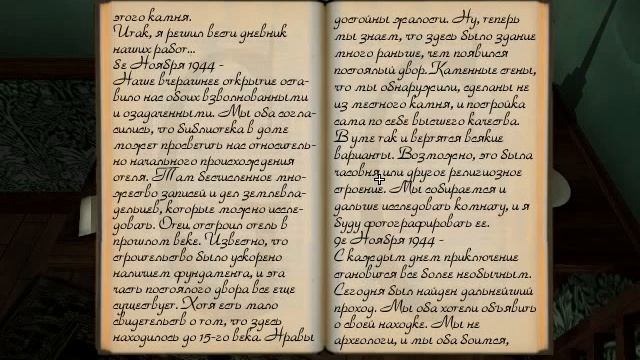 этого камня.
Итак, я решил вести дневник
наших работ...
8е Ноября 1944 -
Наше вчерашнее открытие оста-
вило нас обоих взволнованными
и озадаченными. Мы оба согла-
сились, что библиотека в доме
может просветить нас относитель-
но начального происхождения
отеля. Там бесчисленное мно-
жество записей и дел землевла-
дельцев, которые можно иссле-
довать. Отец отстроил отель в
прошлом веке. Известно, что
строительство было ускорено
наличием фундамента, и эта
часть постоялого двора все еще
существует. Хотя есть мало
свидетельств о том, что здесь
находилось до 15-го века. Нравы
достойны жалости. Ну, теперь
мы знаем, что здесь было здание
много раньше, чем появился
постоялый двор. Каменные стены,
что мы обнаружили, сделаны не
из местного камня, и постройка
сама по себе высшего качества.
В уме так и вертятся всякие
варианты. Возможно, это была
часовня или другое религиозное
строение. Мы собирается и
дальше исследовать комнату, и я
буду фотографировать ее.
9е Ноября 1944 -
С каждым днем приключение
становится все более необычным.
Сегодня был найден дальнейший
проход. Мы оба хотели объявить
о своей находке. Мы не
археологи, и мы оба боимся,